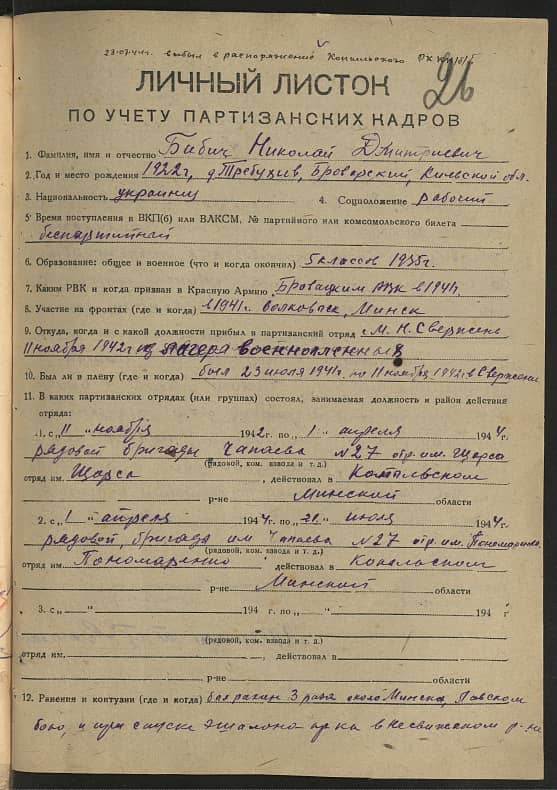 23-07-44г. выбыл в распоряжение Копыльского РК КП(б)Б
26
ЛИЧНЫЙ ЛИСТОК
ПО УЧЕТУ ПАРТИЗАНСКИХ КАДРОВ
1. Фамилия, имя и отчество Бабич Николай Дмитриевич
2. Год и место рождения 1922г, д Требухив, Броварский, Киевской обл.
3. Национальность украинец 4. Соцположение рабочий
5. Время поступления в ВКП(б) или ВЛКСМ, № партийного или комсомольского билета
беспартийный
6. Образование: общее и военное (что и когда окончил) 5 классов 1935г.
7. Каким РВК и когда призван в Красную Армию Броварским РВК в 1941г
8. Участие на фронтах (где и когда) в 1941г. Волковыск, Минск
9. Откуда, когда и с какой должности прибыл в партизанский отряд с М. Н. Свержень
11 ноября 1942г из лагеря военнопленных
10. Был ли в плену (где и когда) был 23 июля 1941г. по 11 ноября 1942г в Свержене
11. В каких партизанских отрядах (или группах) состоял, занимаемая должность и район действия
отряда:
1. с „11" ноября 1942г. по „1" апреля 1944г.
рядовой бригады Чапаева №27 отр. им. Щорса
(рядовой, ком. взвода и т. д.)
отряд им. Щорса, действовал в Копыльском
р-не Минской области
2. с „1" апреля 1944г. по „ " июля 1944г.
рядовой, бригада им Чапаева №27 отр. им. Пономаренко
(рядовой, ком. взвода и т. д.)
отряд им. Пономаренко действовал в Копыльском
р-не Минской области
3. с „ " 194 г. по „ " 194 г
(рядовой, ком. взвода и т. д.)
отряд им. , действовал в
р-не области
12. Ранения и контузии (где и когда) был ранен 3 раза около Минска, Лавском
бою, и при спуске эшалона врка в Несвижском р-не